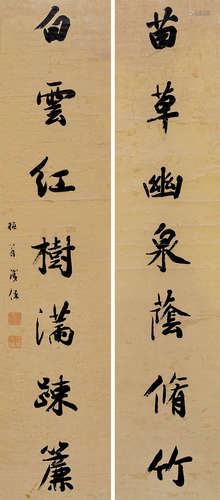 苗草幽泉蔭脩竹
白雲紅樹滿疎簾